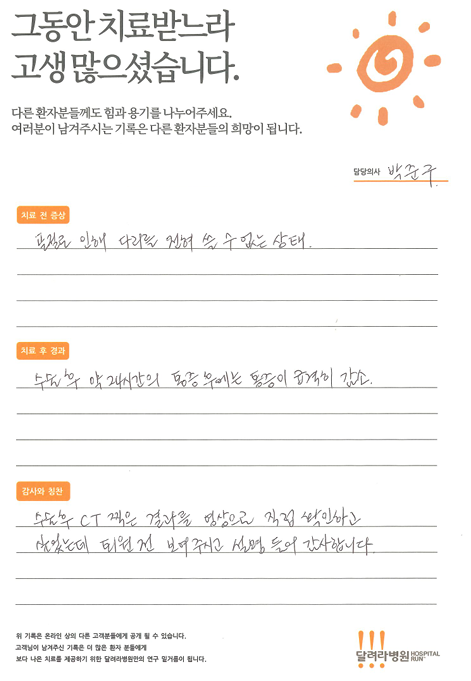 그동안 치료받느라
고생 많으셨습니다.
다른 환자분들께도 힘과 용기를 나누어주세요.
여러분이 남겨주시는 기록은 다른 환자분들의 희망이 됩니다.
담당의사 박준구.
치료 전 증상
골절로 인해 다리를 전혀 쓸 수 없는 상태.
치료 후 경과
수술 후 약 24시간의 통증 후에는 통증이 급격히 감소.
감사와 칭찬
수술 후 CT 찍은 결과를 영상으로 직접 확인하고
싶었는데 퇴원 전 보여주시고 설명 들어 감사합니다.
위 기록은 온라인 상의 다른 고객분들에게 공개 될 수 있습니다.
고객님이 남겨주신 기록은 더 많은 환자 분들에게
보다 나은 치료를 제공하기 위한 달려라병원만의 연구 밑거름이 됩니다.
달려라병원 HOSPITAL RUN